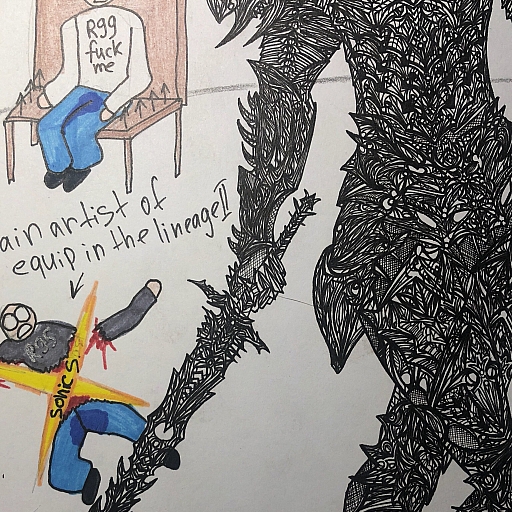 Rgg
fuck
me
ain artist of
equip in the lineage II
sonic s